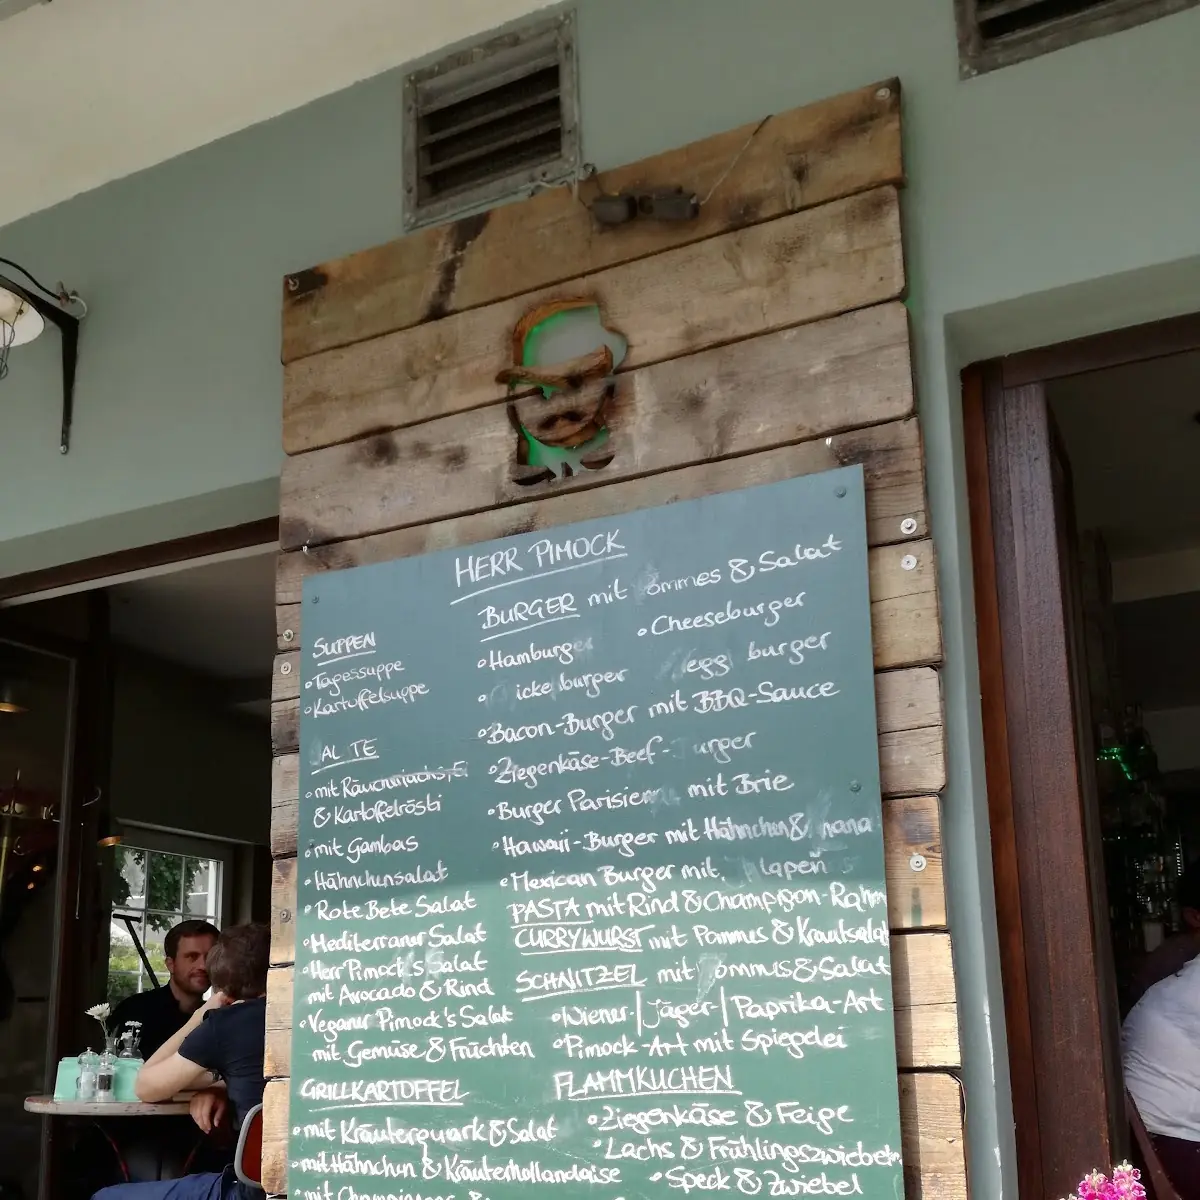 HERR PIMOCK
SUPPEN
Tagessuppe
Kartoffelsuppe
AL TE
mit
& Kartoffelrösti
mit Gambas
Hähnchensalat
Rote Bete Salat
Mediterraner Salat
Herr Pimock's Salat
mit Avocado & Rind
Veganer Pimock's Salat
mit Gemüse & Früchten
GRILLKARTOFFEL
mit Kräuterquark & Salat
mit Hähnchen & Kräuterhollandaise
mit
BURGER mit ommes & Salat
Hamburger Cheeseburger
icke burger egg burger
Bacon-Burger mit BBQ-Sauce
Ziegenkäse-Beef- urger
Burger Parisien mit Brie
Hawaii-Burger mit Hähnchen & nana
Mexican Burger mit lapeñ s
PASTA mit Rind & Champignon-Rahm
CURRYWURST mit Pommes & Krautsalat
SCHNITZEL mit ommes & Salat
Wiener-| Jäger-| Paprika-Art
Pimock-Art mit Spiegelei
FLAMMKUCHEN
Ziegenkäse & Feige
Lachs & Frühlingszwiebel
Speck & Zwiebel